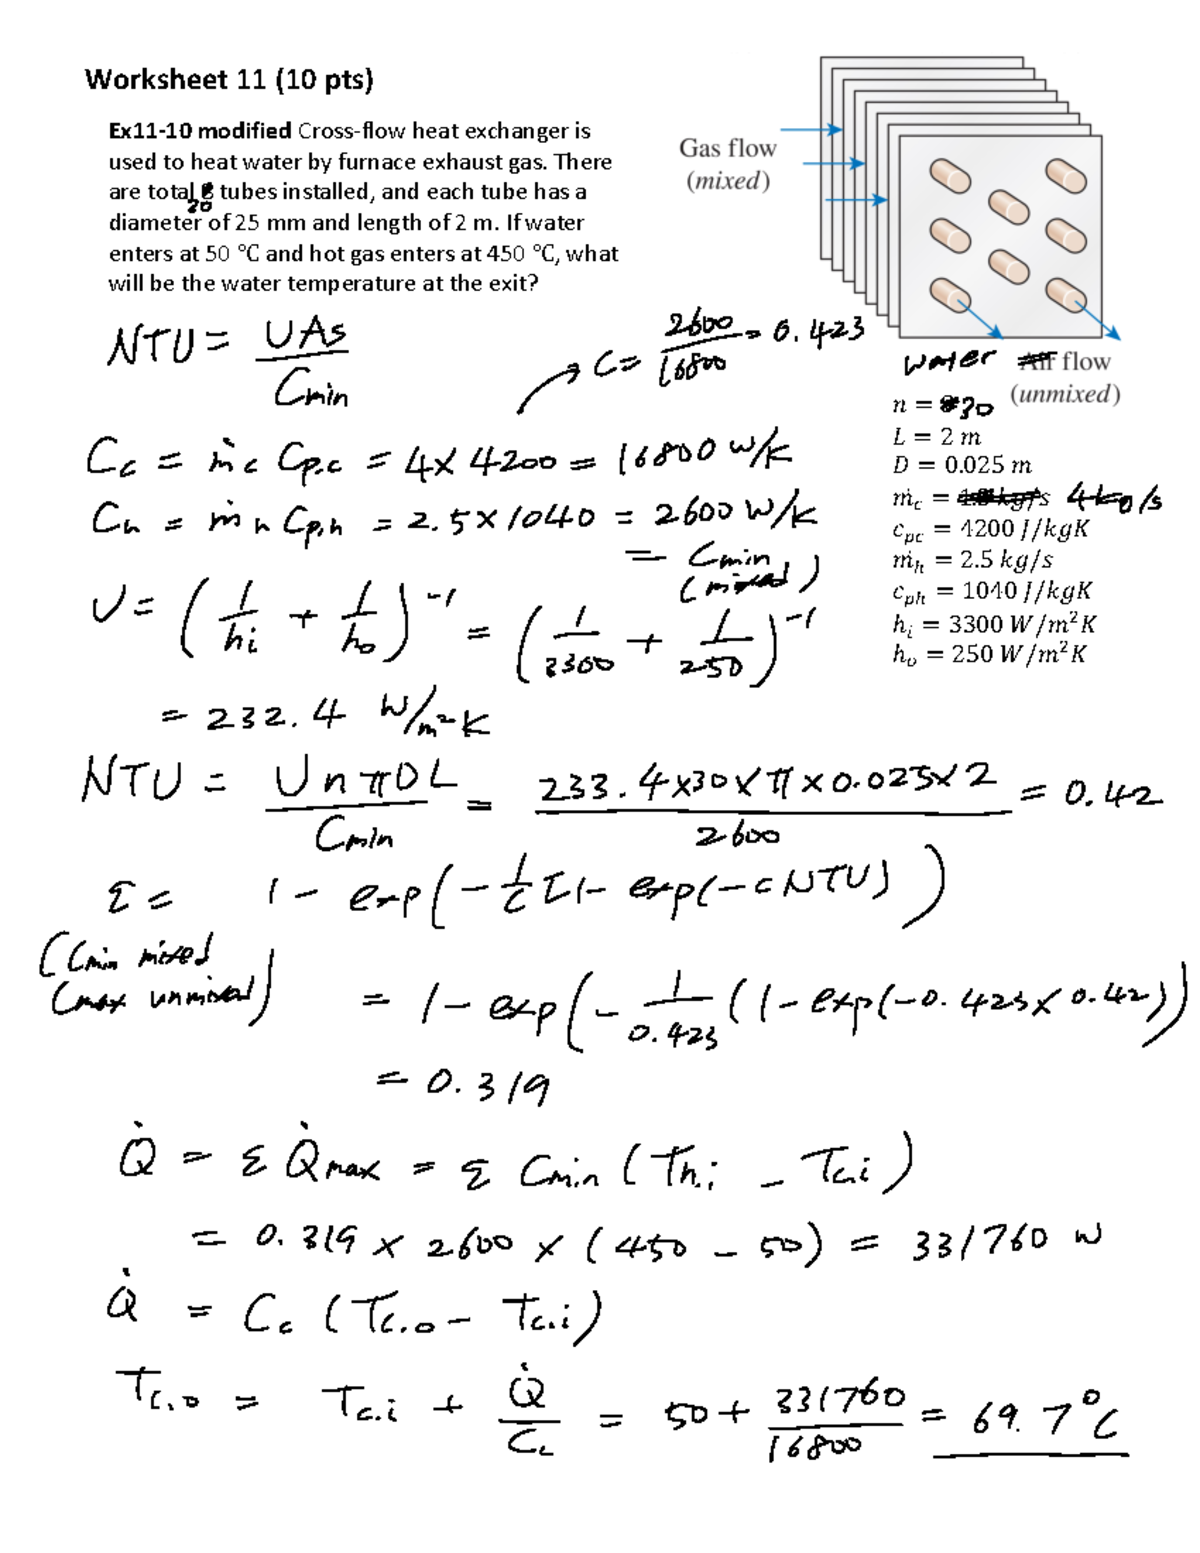 Worksheet 11 (10 pts)
Ex11-10 modified Cross-flow heat exchanger is
used to heat water by furnace exhaust gas. There
are total tubes installed, and each tube has a
30
diameter of 25 mm and length of 2 m. If water
enters at 50 °C and hot gas enters at 450 °C, what
will be the water temperature at the exit?
Gas flow
(mixed)
water Air flow
(unmixed)
n = 30
L = 2 m
D = 0.025 m
ṁc = 4 kg/s
cpc = 4200 J/kgK
ṁh = 2.5 kg/s
cph = 1040 J/kgK
hi = 3300 W/m²K
ho = 250 W/m²K
NTU = UAs / Cmin
→ C = 2600 / 16800 = 0.423
Cc = ṁc Cp.c = 4 x 4200 = 16800 W/K
Ch = ṁh Cp.h = 2.5 x 1040 = 2600 W/K
= Cmin
(mixed)
U = (1/hi + 1/ho)⁻¹ = (1/3300 + 1/250)⁻¹
= 232.4 W/m²K
NTU = UnπDL / Cmin = 233.4 x 30 x π x 0.025 x 2 / 2600 = 0.42
Σ = 1 - exp(-1/c [1 - exp(-c NTU))
(Cmin mixed
Cmax unmixed)
= 1 - exp(-1/0.423 (1 - exp(-0.423 x 0.42))
= 0.319
Q̇ = Σ Q̇max = Σ Cmin (Th.i - Tc.i)
= 0.319 x 2600 x (450 - 50) = 331760 W
Q̇ = Cc (Tc.o - Tc.i)
Tc.o = Tc.i + Q̇/Cc = 50 + 331760/16800 = 69.7°C